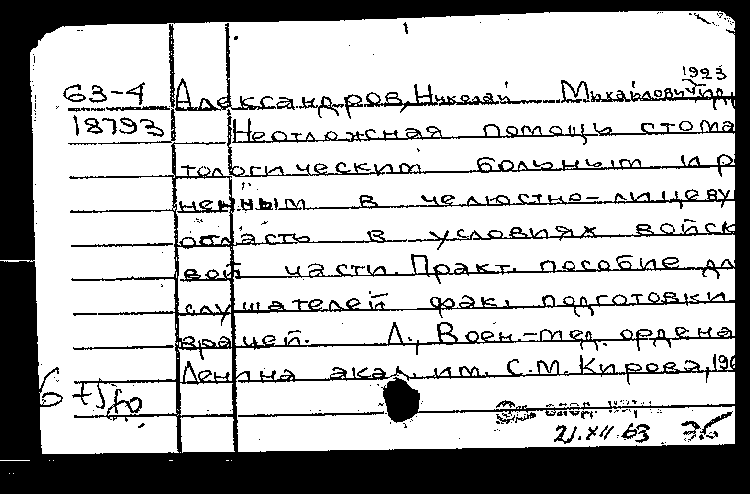 1
1923
63-4 Александров, Николай Михайлович,
18793 Неотложная помощь стома
тологическим больным и р
ненным в челюстно-лицеву
область в условиях войск
вой части. Практ. пособие дл
слушателей фак. подготовки
врачей. Л., Воен.-мед. ордена
Ленина акад. им. С.М. Кирова, 196
21.XII 63